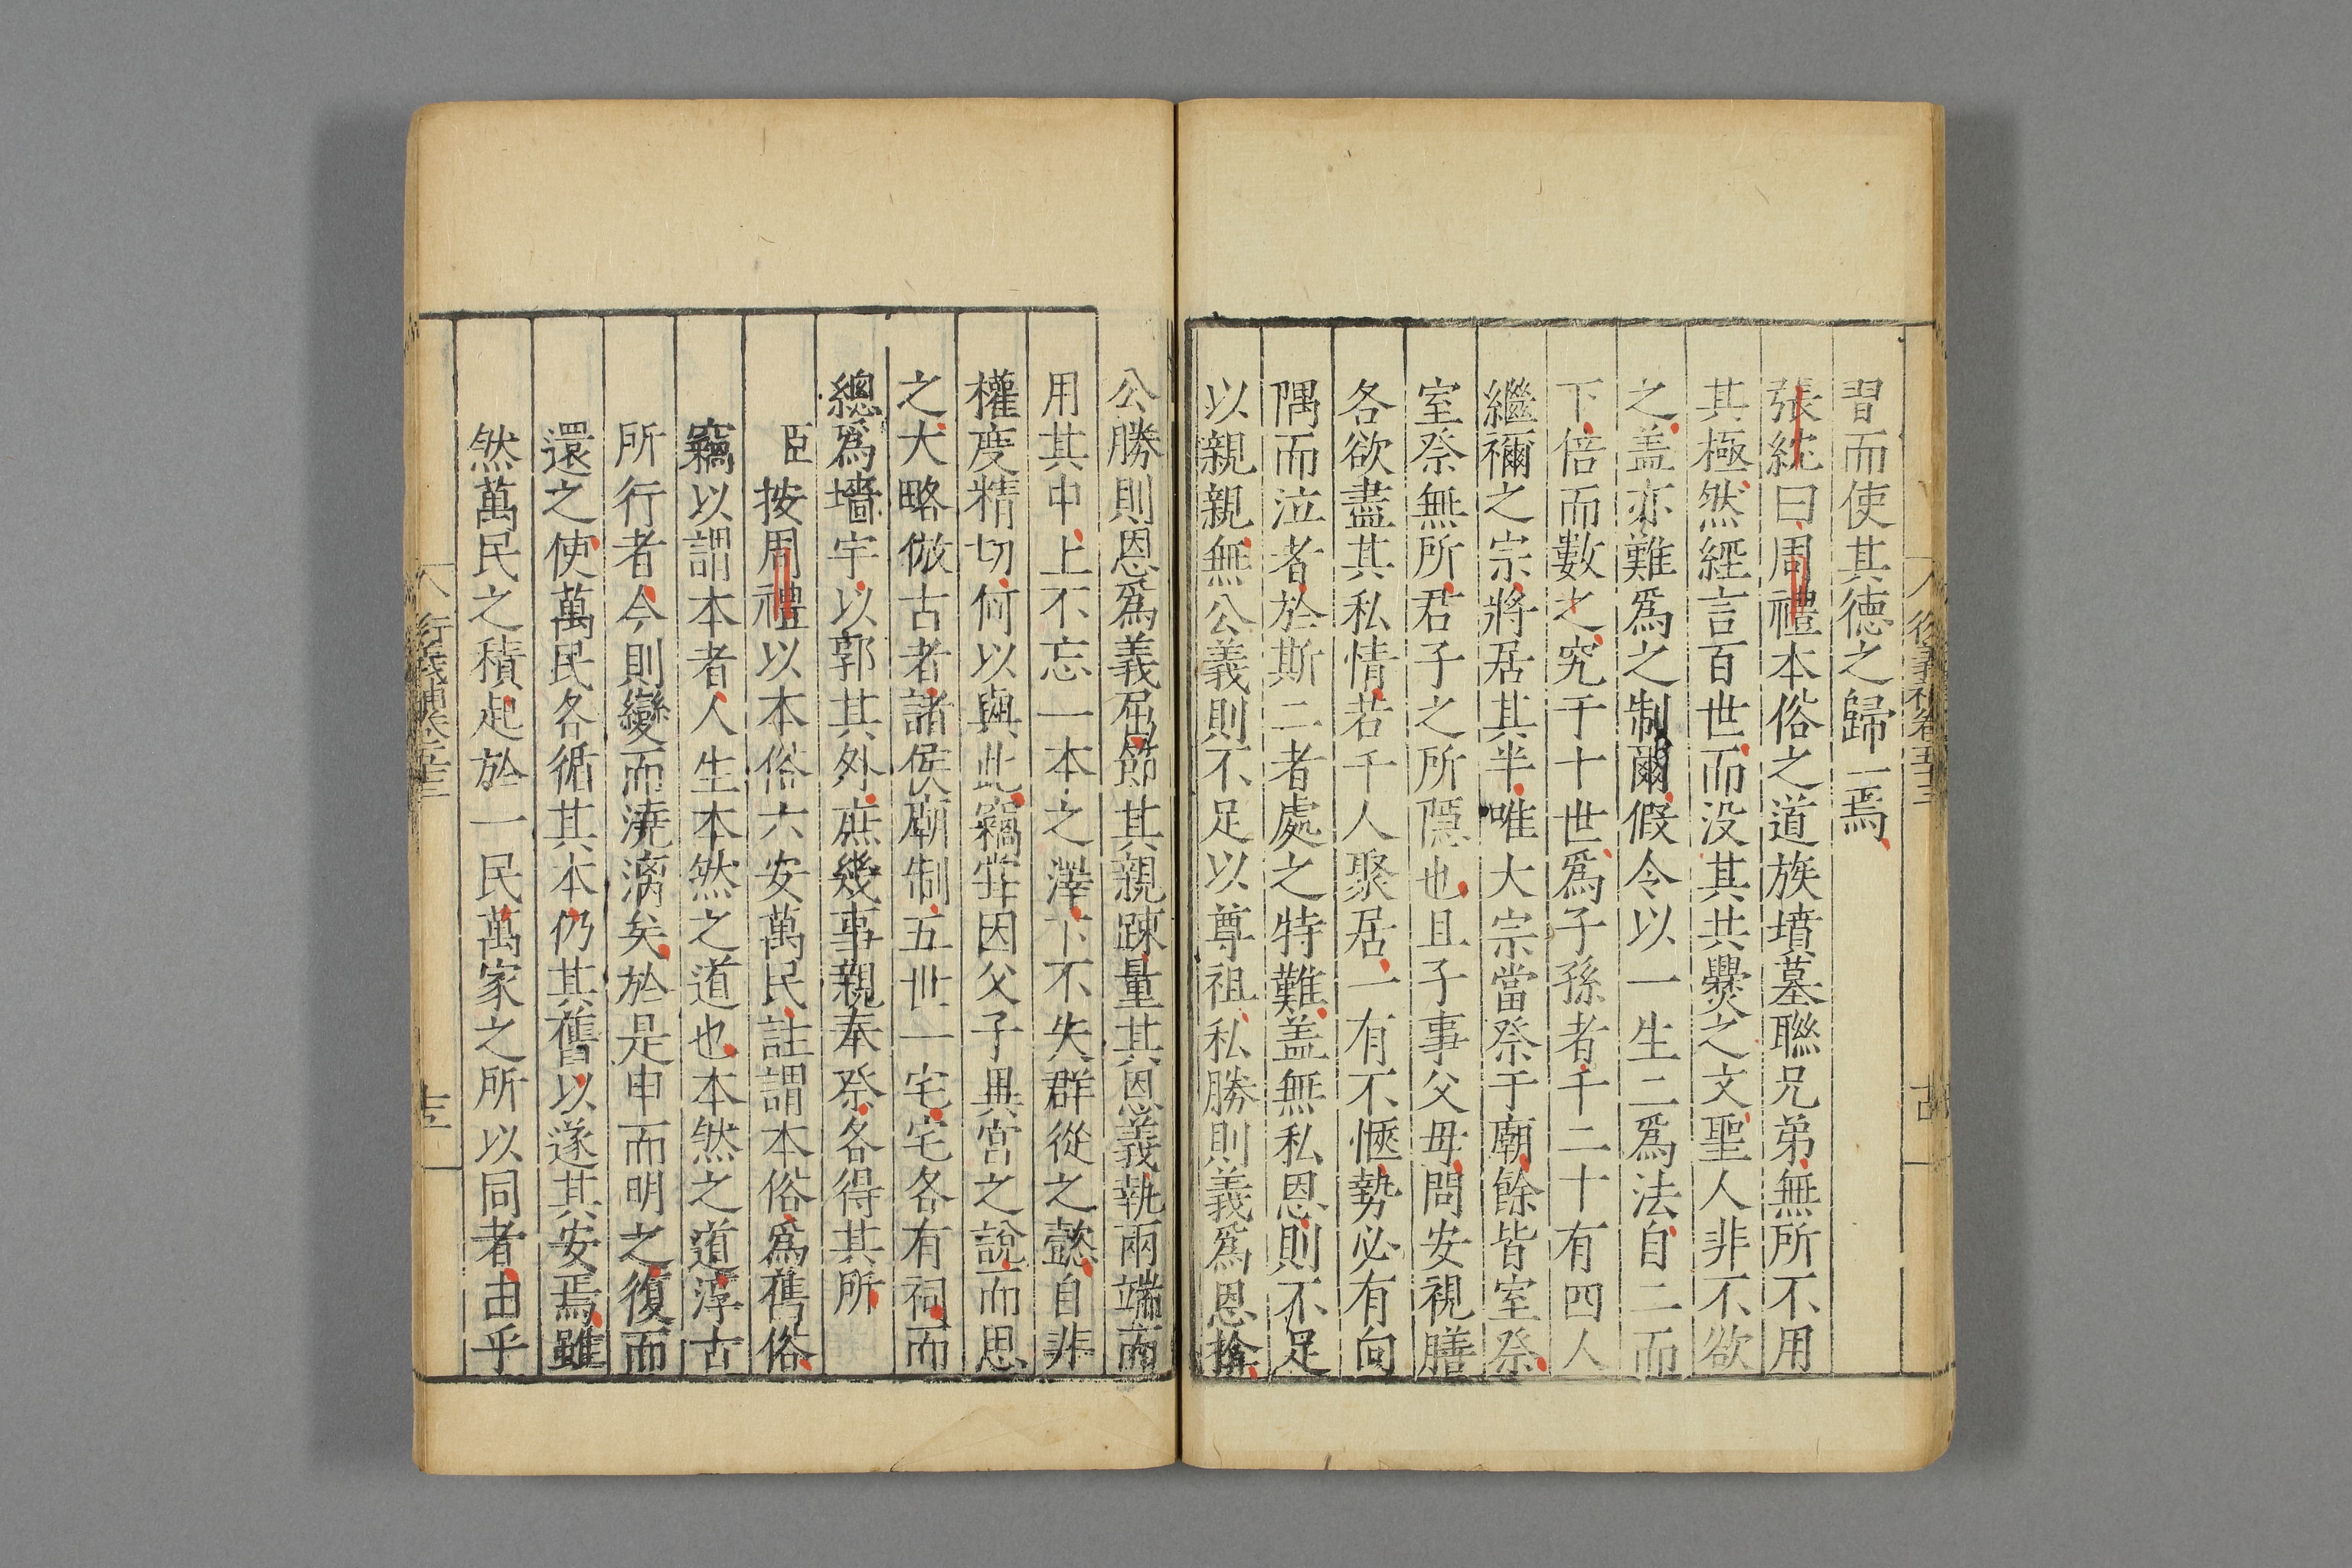 習而使其德之歸一焉
張紞曰周禮本俗之道族墳墓聯兄弟無所不用
其極然經言百世而没其共爨之文聖人非不欲
之盖亦難爲之制爾假令以一生二爲法自二而
下倍而數之究于十世爲子孫者千二十有四人
繼禰之宗將居其半唯大宗當祭于廟餘皆室祭
室祭無所君子之所隱也且子事父母問安視膳
各欲盡其私情若千人聚居一有不愜勢必有向
隅而泣者於斯二者處之特難盖無私恩則不足
以親親無公義則不足以尊祖私勝則義爲恩揜
公勝則恩爲義屈節其親踈量其恩義執兩端而
用其中上不忘一本之澤下不失群從之懿自非
權度精切何以與此竊甞因父子異宮之說而思
之大略倣古者諸侯廟制五世一宅宅各有祠而
總爲墻宇以郭其外庶幾事親奉祭各得其所
臣按周禮以本俗六安萬民註謂本俗爲舊俗
竊以謂本者人生本然之道也本然之道淳古
所行者今則變而澆漓矣於是申而明之復而
還之使萬民各循其本仍其舊以遂其安焉雖
然萬民之積起於一民萬家之所以同者由乎